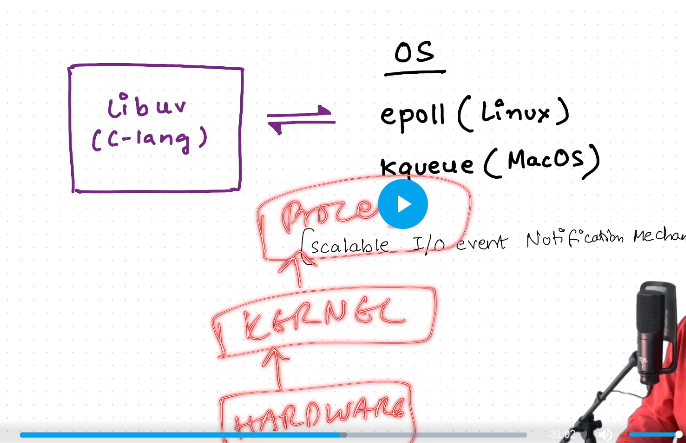 OS
Libuv
(C-lang)
epoll (Linux)
kqueue (MacOS)
[scalable I/O event Notification Mechan
KERNEL
HARDWARE